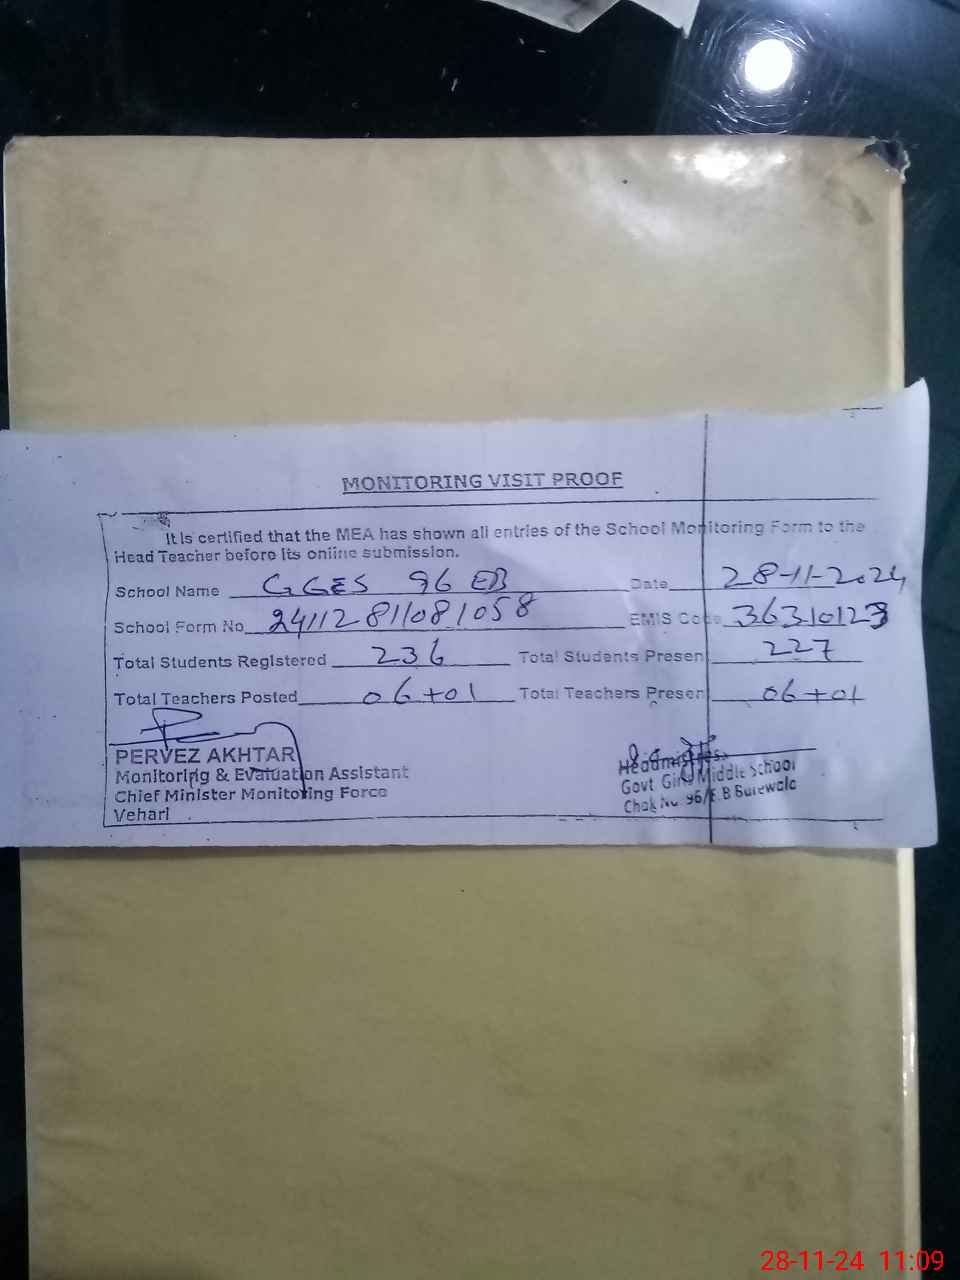 MONITORING VISIT PROOF
It is certified that the MEA has shown all entries of the School Monitoring Form to the
Head Teacher before its online submission.
School Name GGES 96 EB Date 28-11-2024
School Form No 24112811081058 EMIS Code 36310123
Total Students Registered 236 Total Students Presen 227
Total Teachers Posted 06+01 Total Teachers Presen 06+01
PERVEZ AKHTAR
Monitoring & Evaluation Assistant
Chief Minister Monitoring Force
Vehari
Headmistress
Govt Girls Middle School
Chak No 96/E.B Burewala
28-11-24 11:09